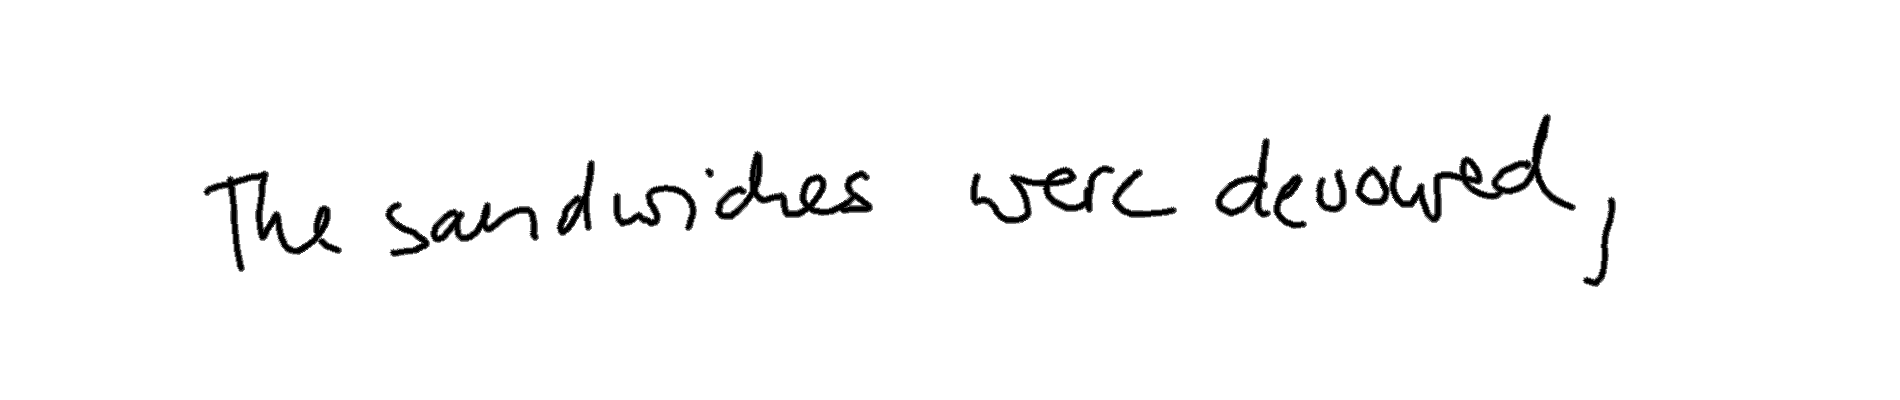 The sandwiches were devoured,